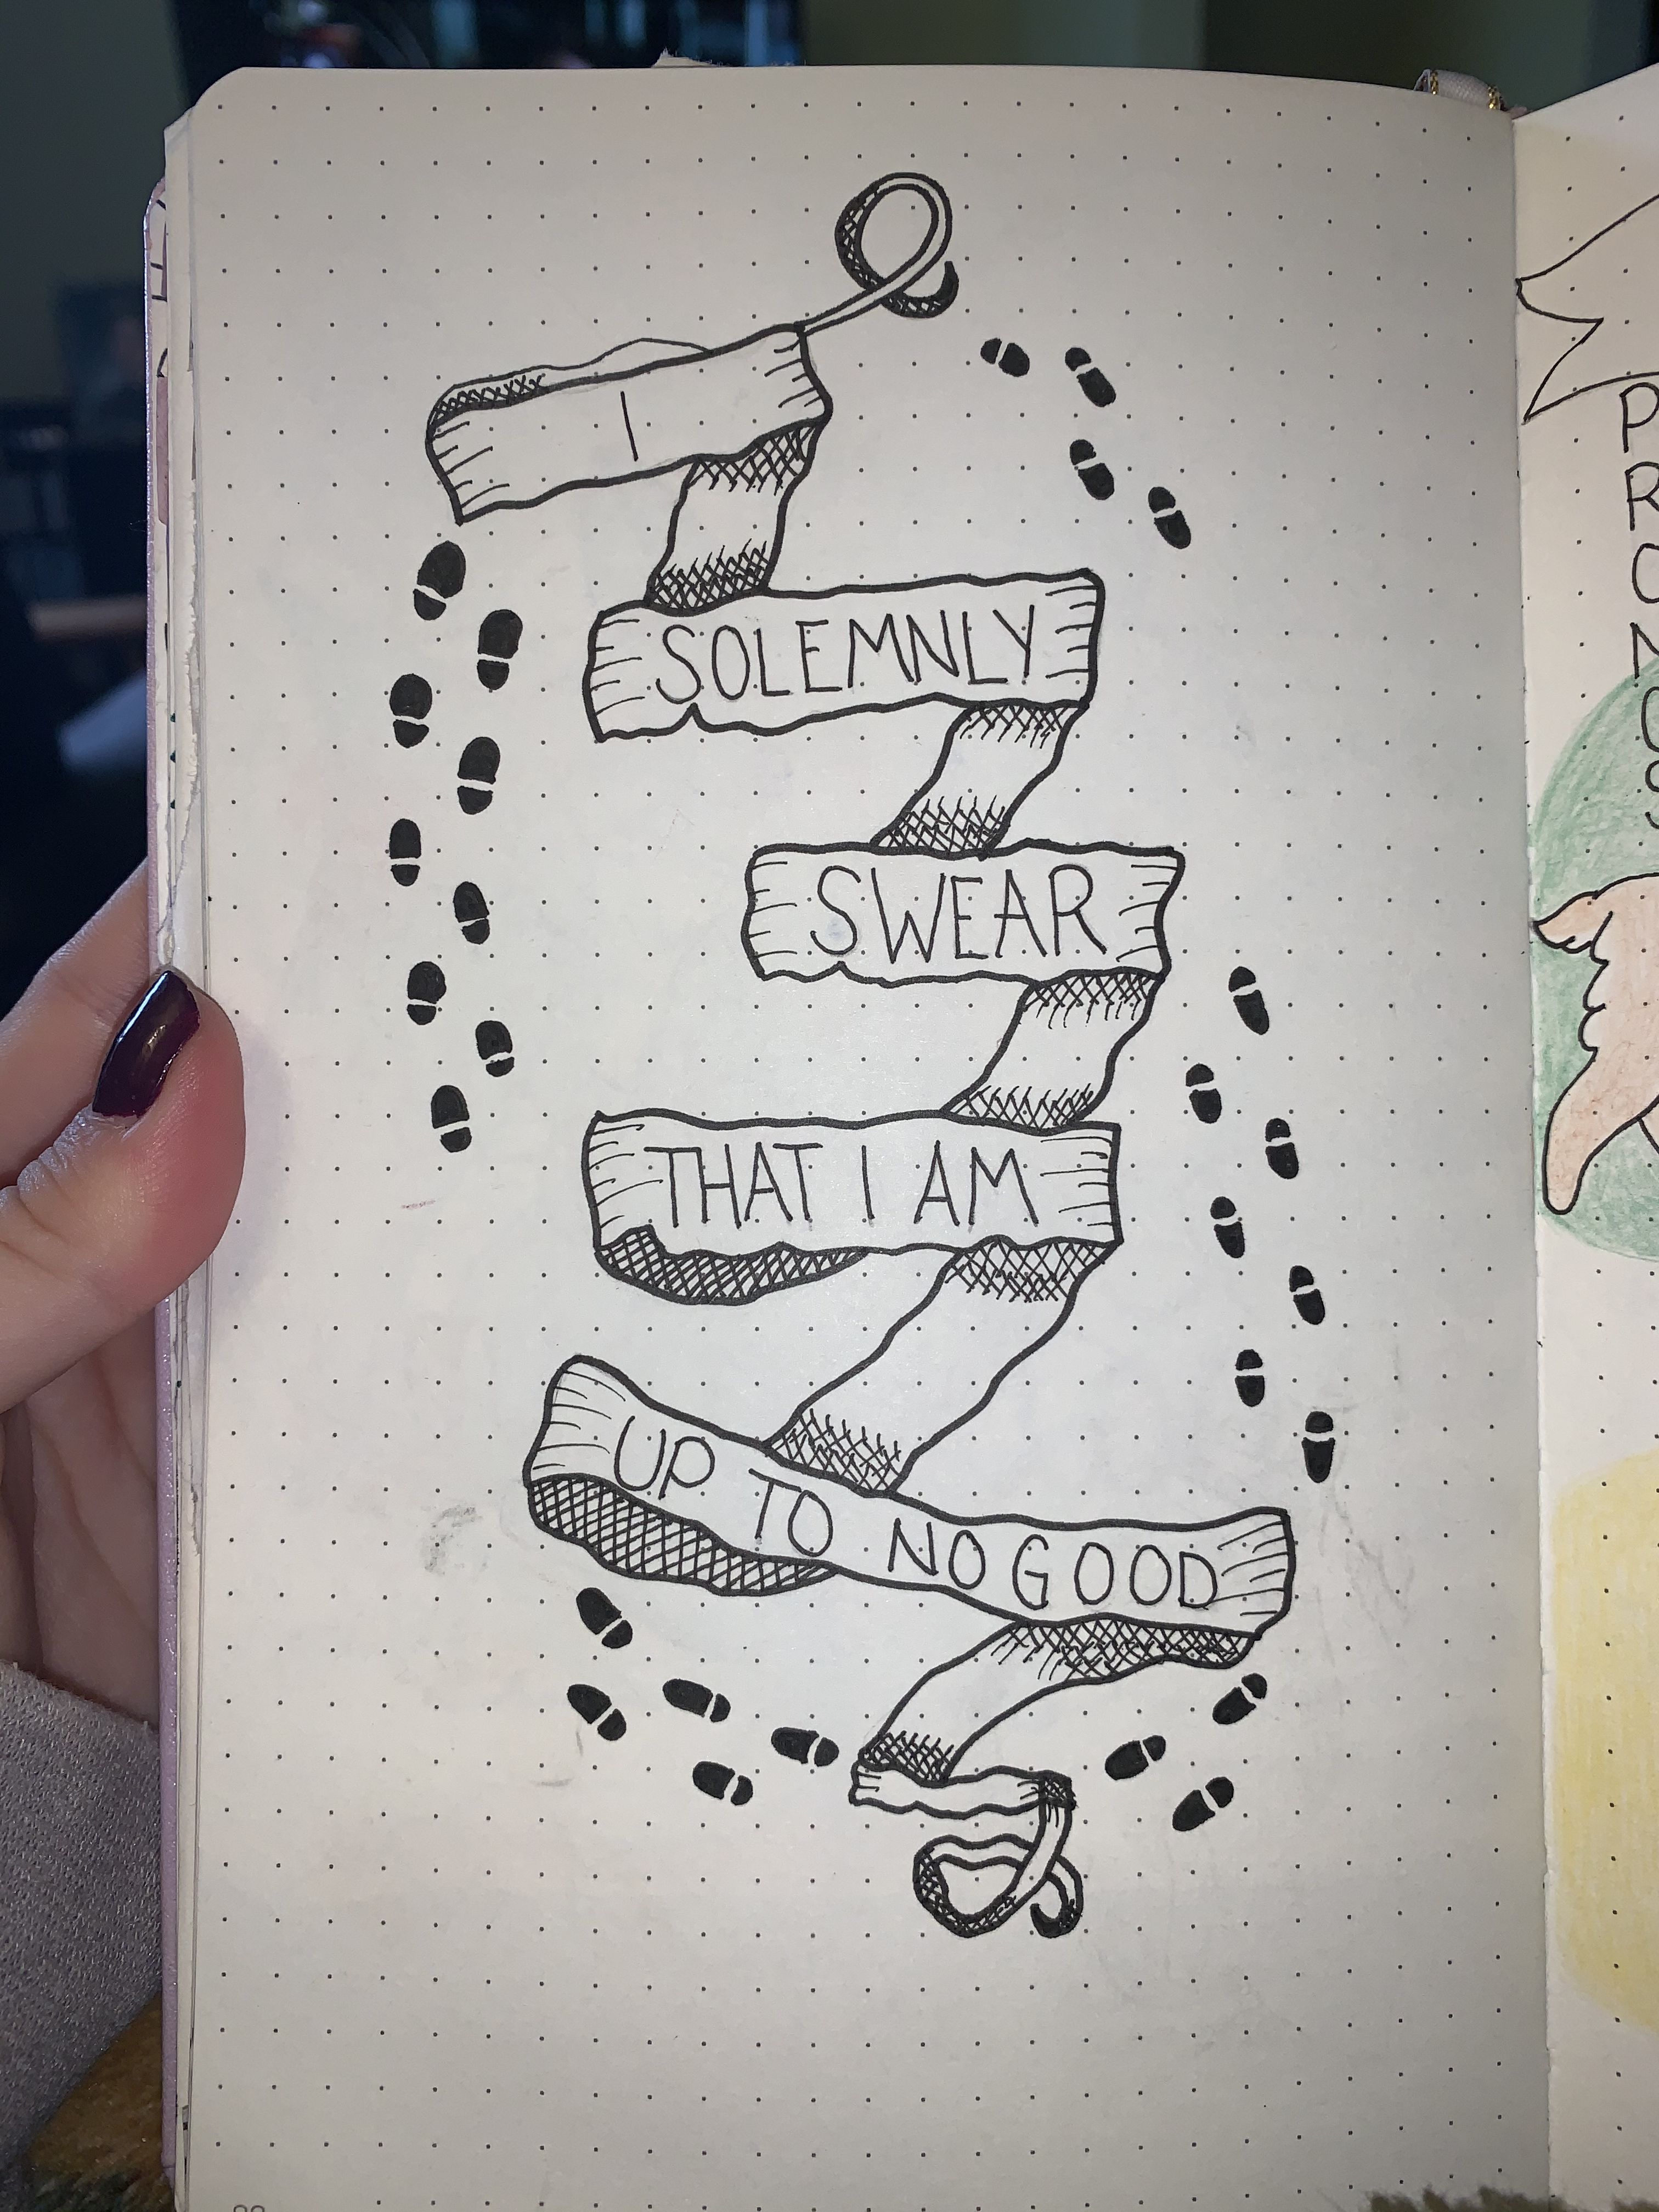 I
SOLEMNLY
SWEAR
THAT I AM
UP TO NO GOOD